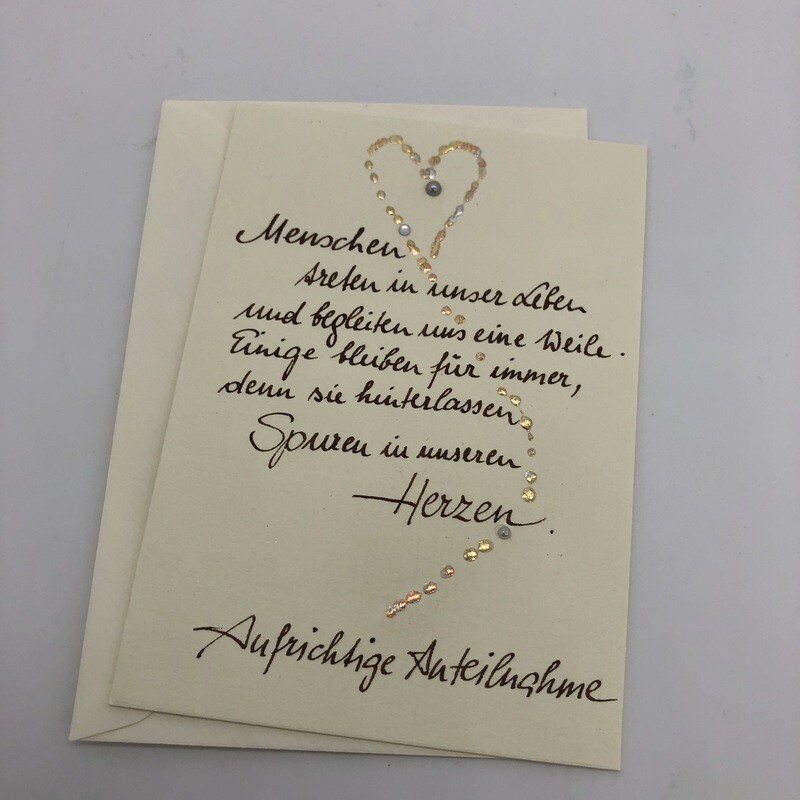 Menschen
treten in unser Leben
und begleiten uns eine Weile.
Einige bleiben für immer,
denn sie hinterlassen
Spuren in unseren
Herzen.
Aufrichtige Anteilnahme